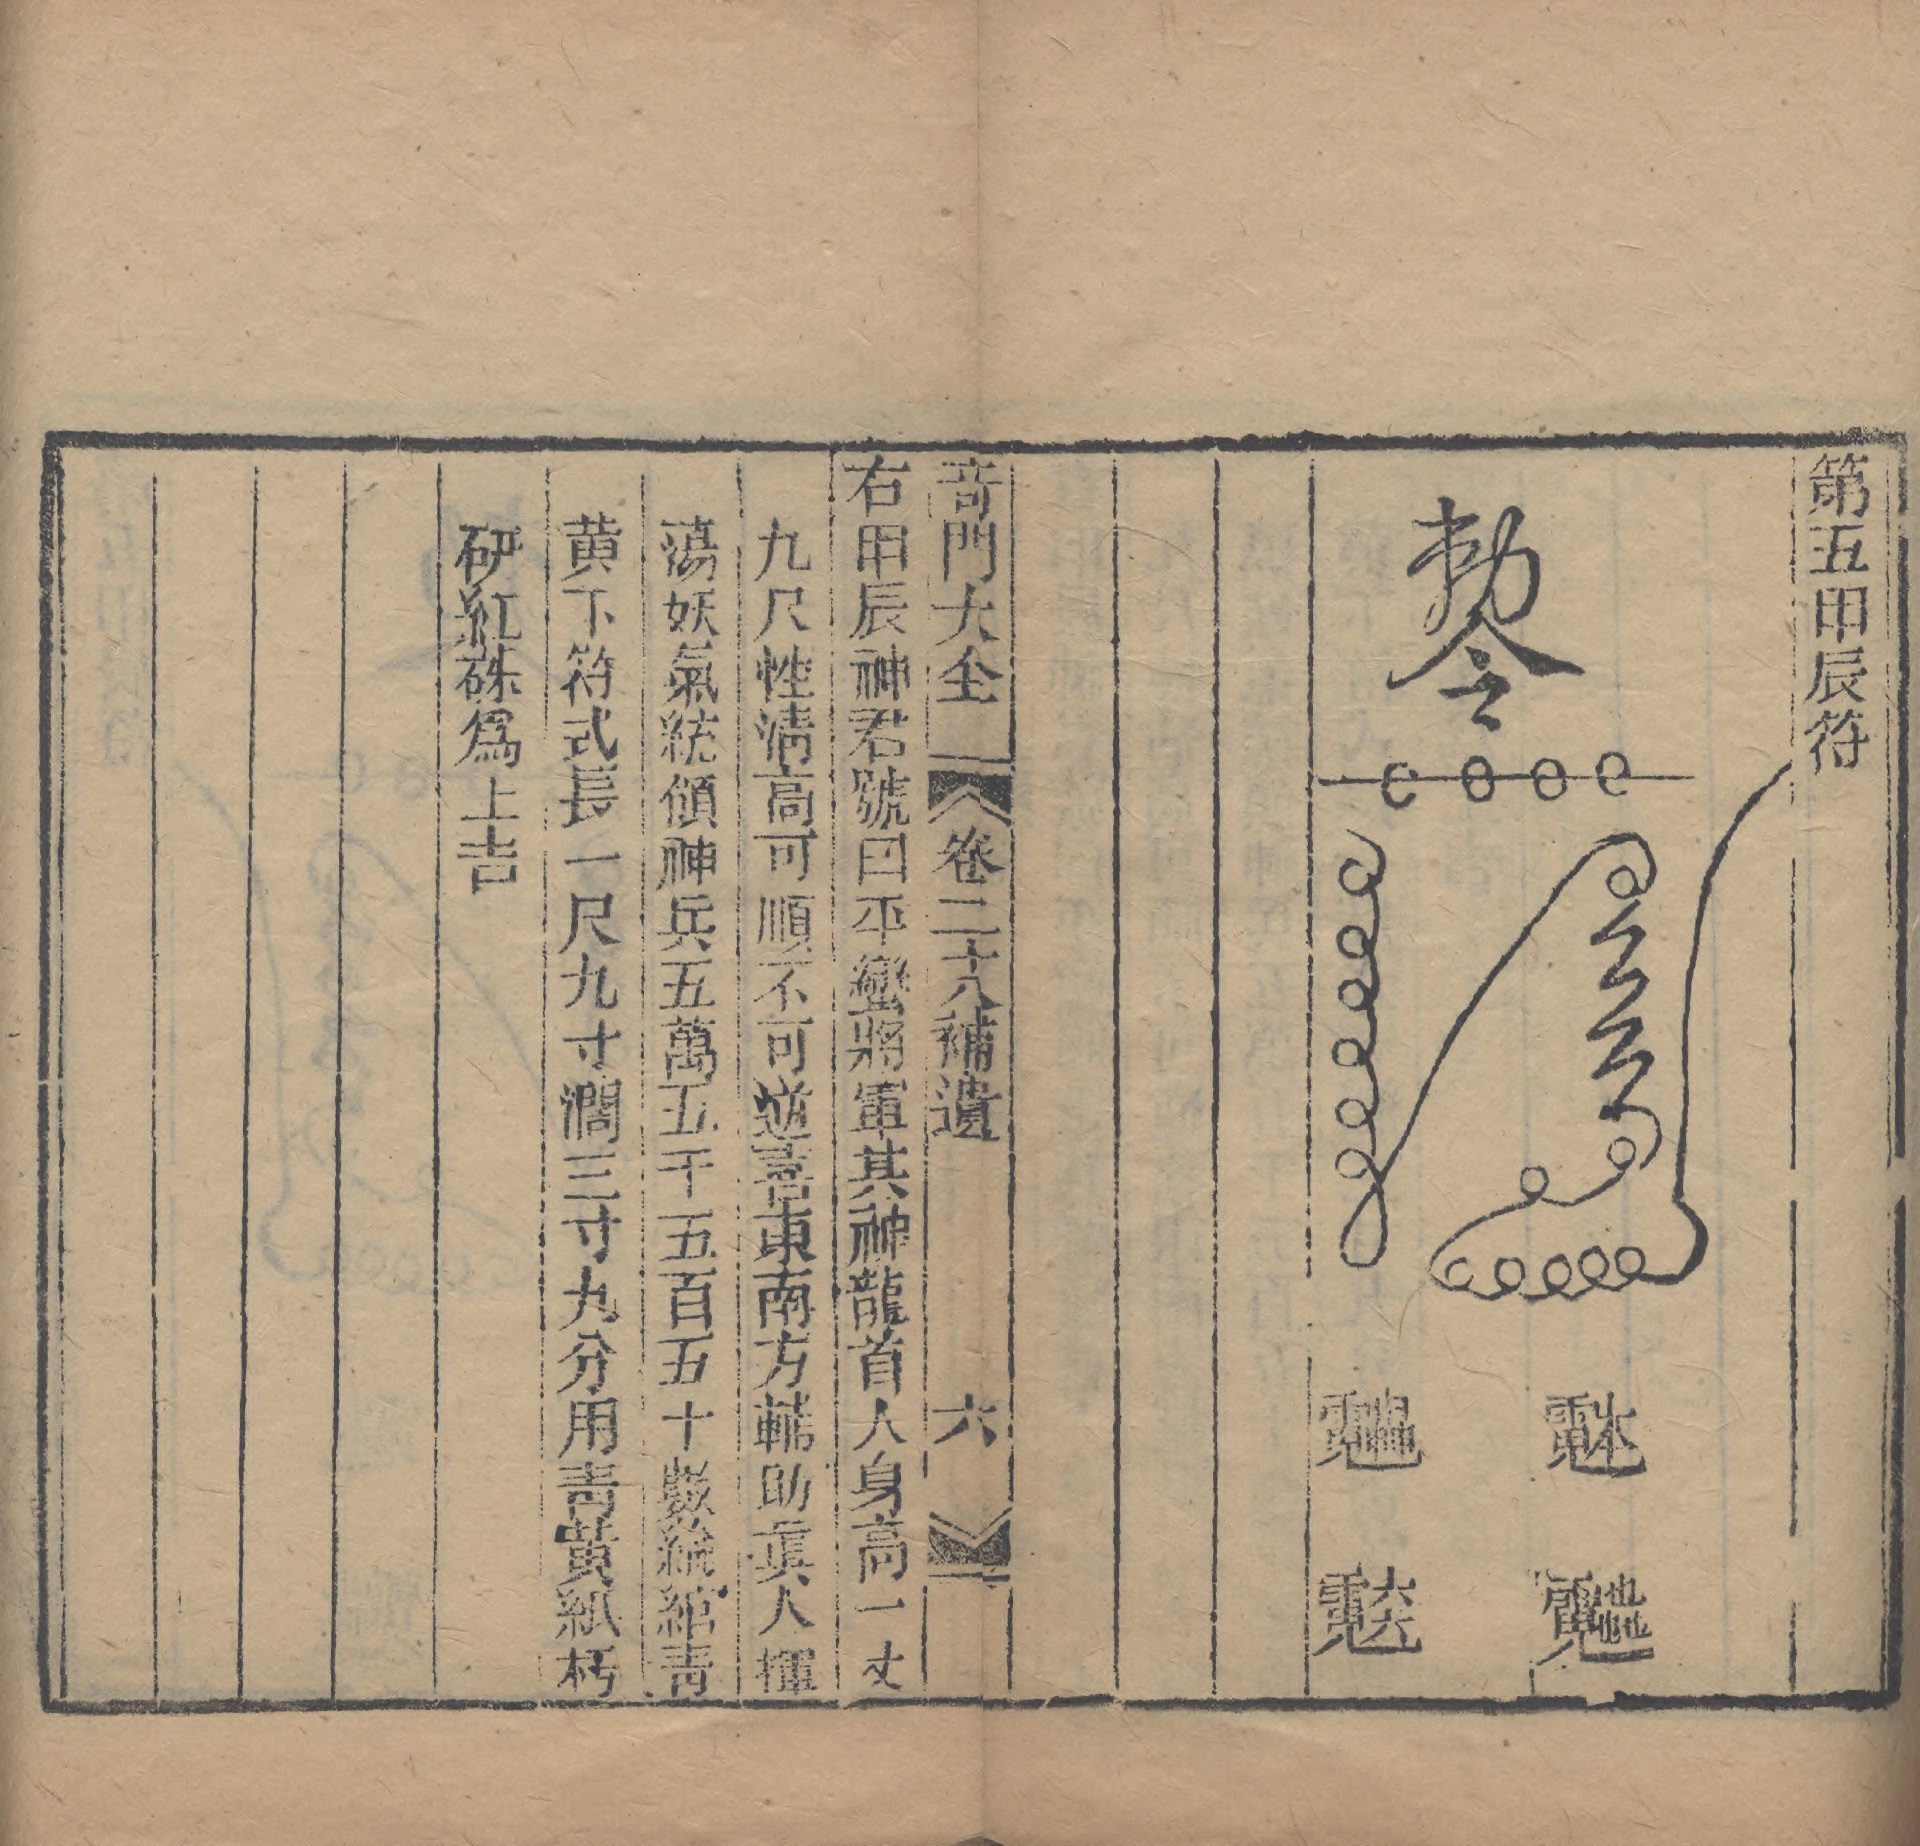 第五甲辰符
勅令
奇門大全
卷二十八補遺
六
右甲辰神君號曰平蠻將軍其神龍首人身高一丈
九尺性清高可順不可逆喜東南方輔助眞人揮
蕩妖氣統領神兵五萬五千五百五十數綸綰青
黄下符式長一尺九寸濶三寸九分用青黄紙
硃爲上吉